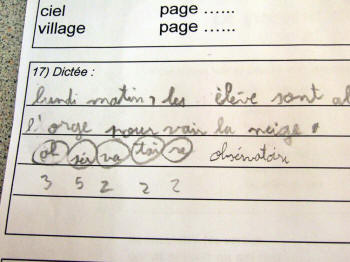 ciel page ......
village page ......
17) Dictée :
lundi matin, les élève sont al
l'orge pour voir la neige.
ob ser va toi re obsérvatoire
3 5 2 2 2